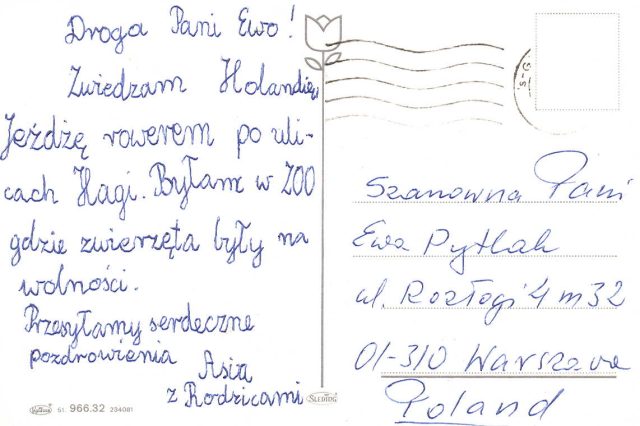 Droga Pani Ewo!
Zwiedzam Holandię,
Jeżdżę rowerem po uli-
cach Hagi. Byłam w ZOO
gdzie zwierzęta były na
wolności.
Przesyłamy serdeczne
pozdrowienia
Asia
z Rodzicami
51. 966.32 234081
SLEDING
Szanowna Pani
Ewa Pytlak
ul. Rozłogi 4 m 32
01-310 Warszawa
Poland